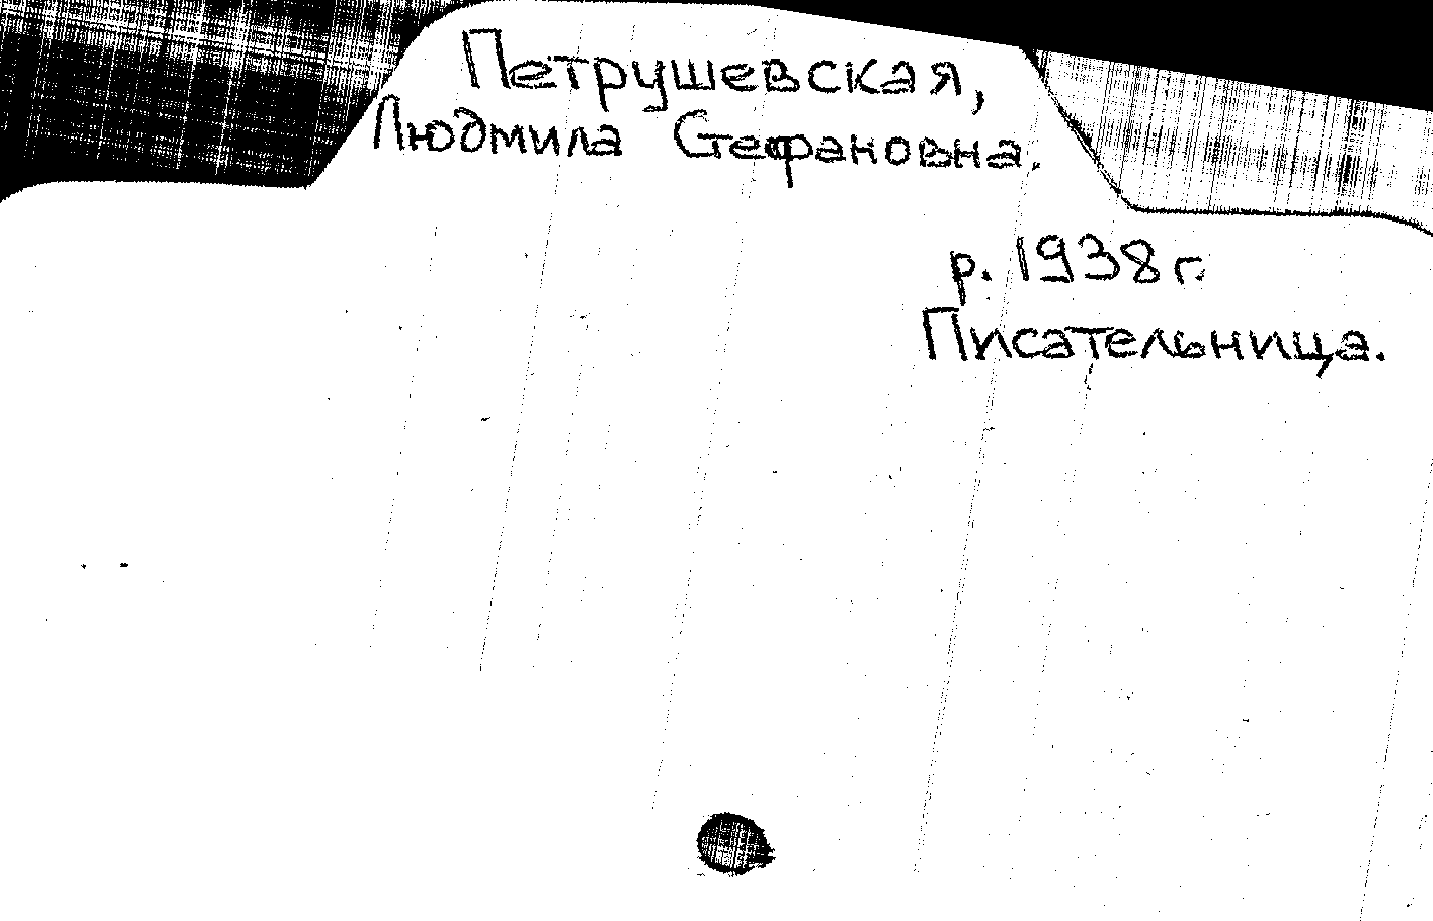 Петрушевская,
Людмила Стефановна.
р. 1938 г.
Писательница.